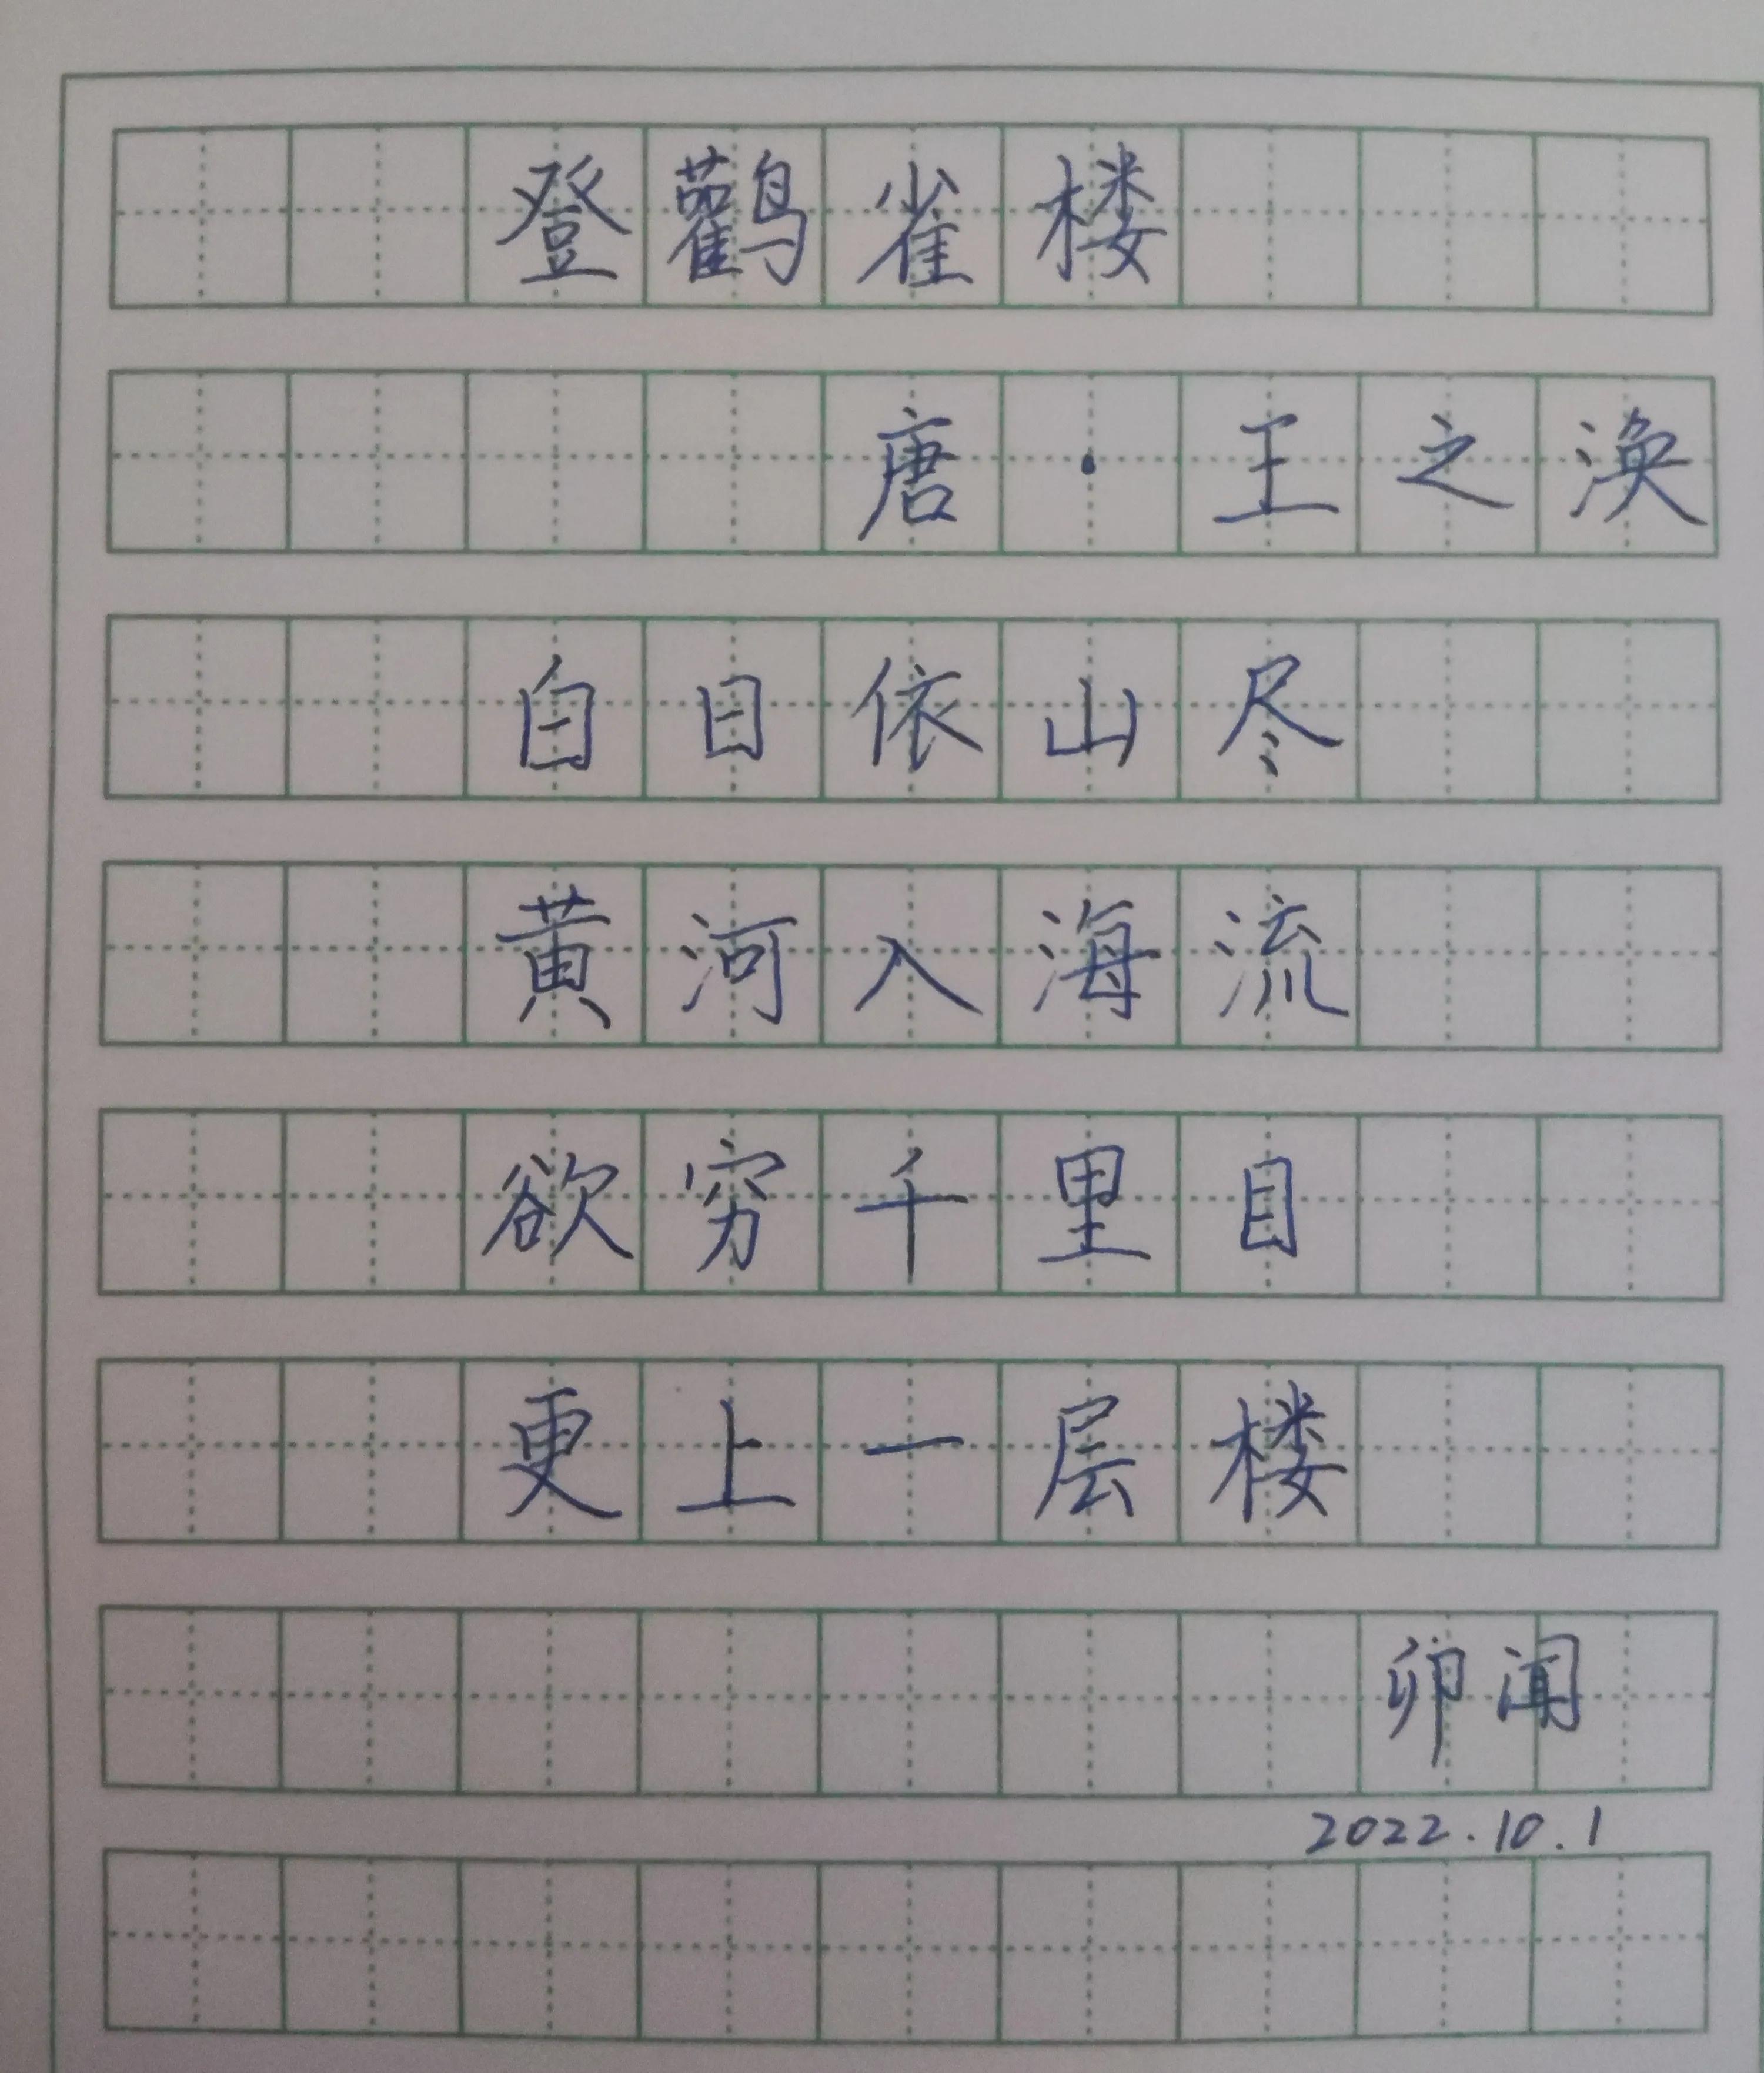 登鹳雀楼
唐·王之涣
白日依山尽
黄河入海流
欲穷千里目
更上一层楼
卯闻
2022.10.1